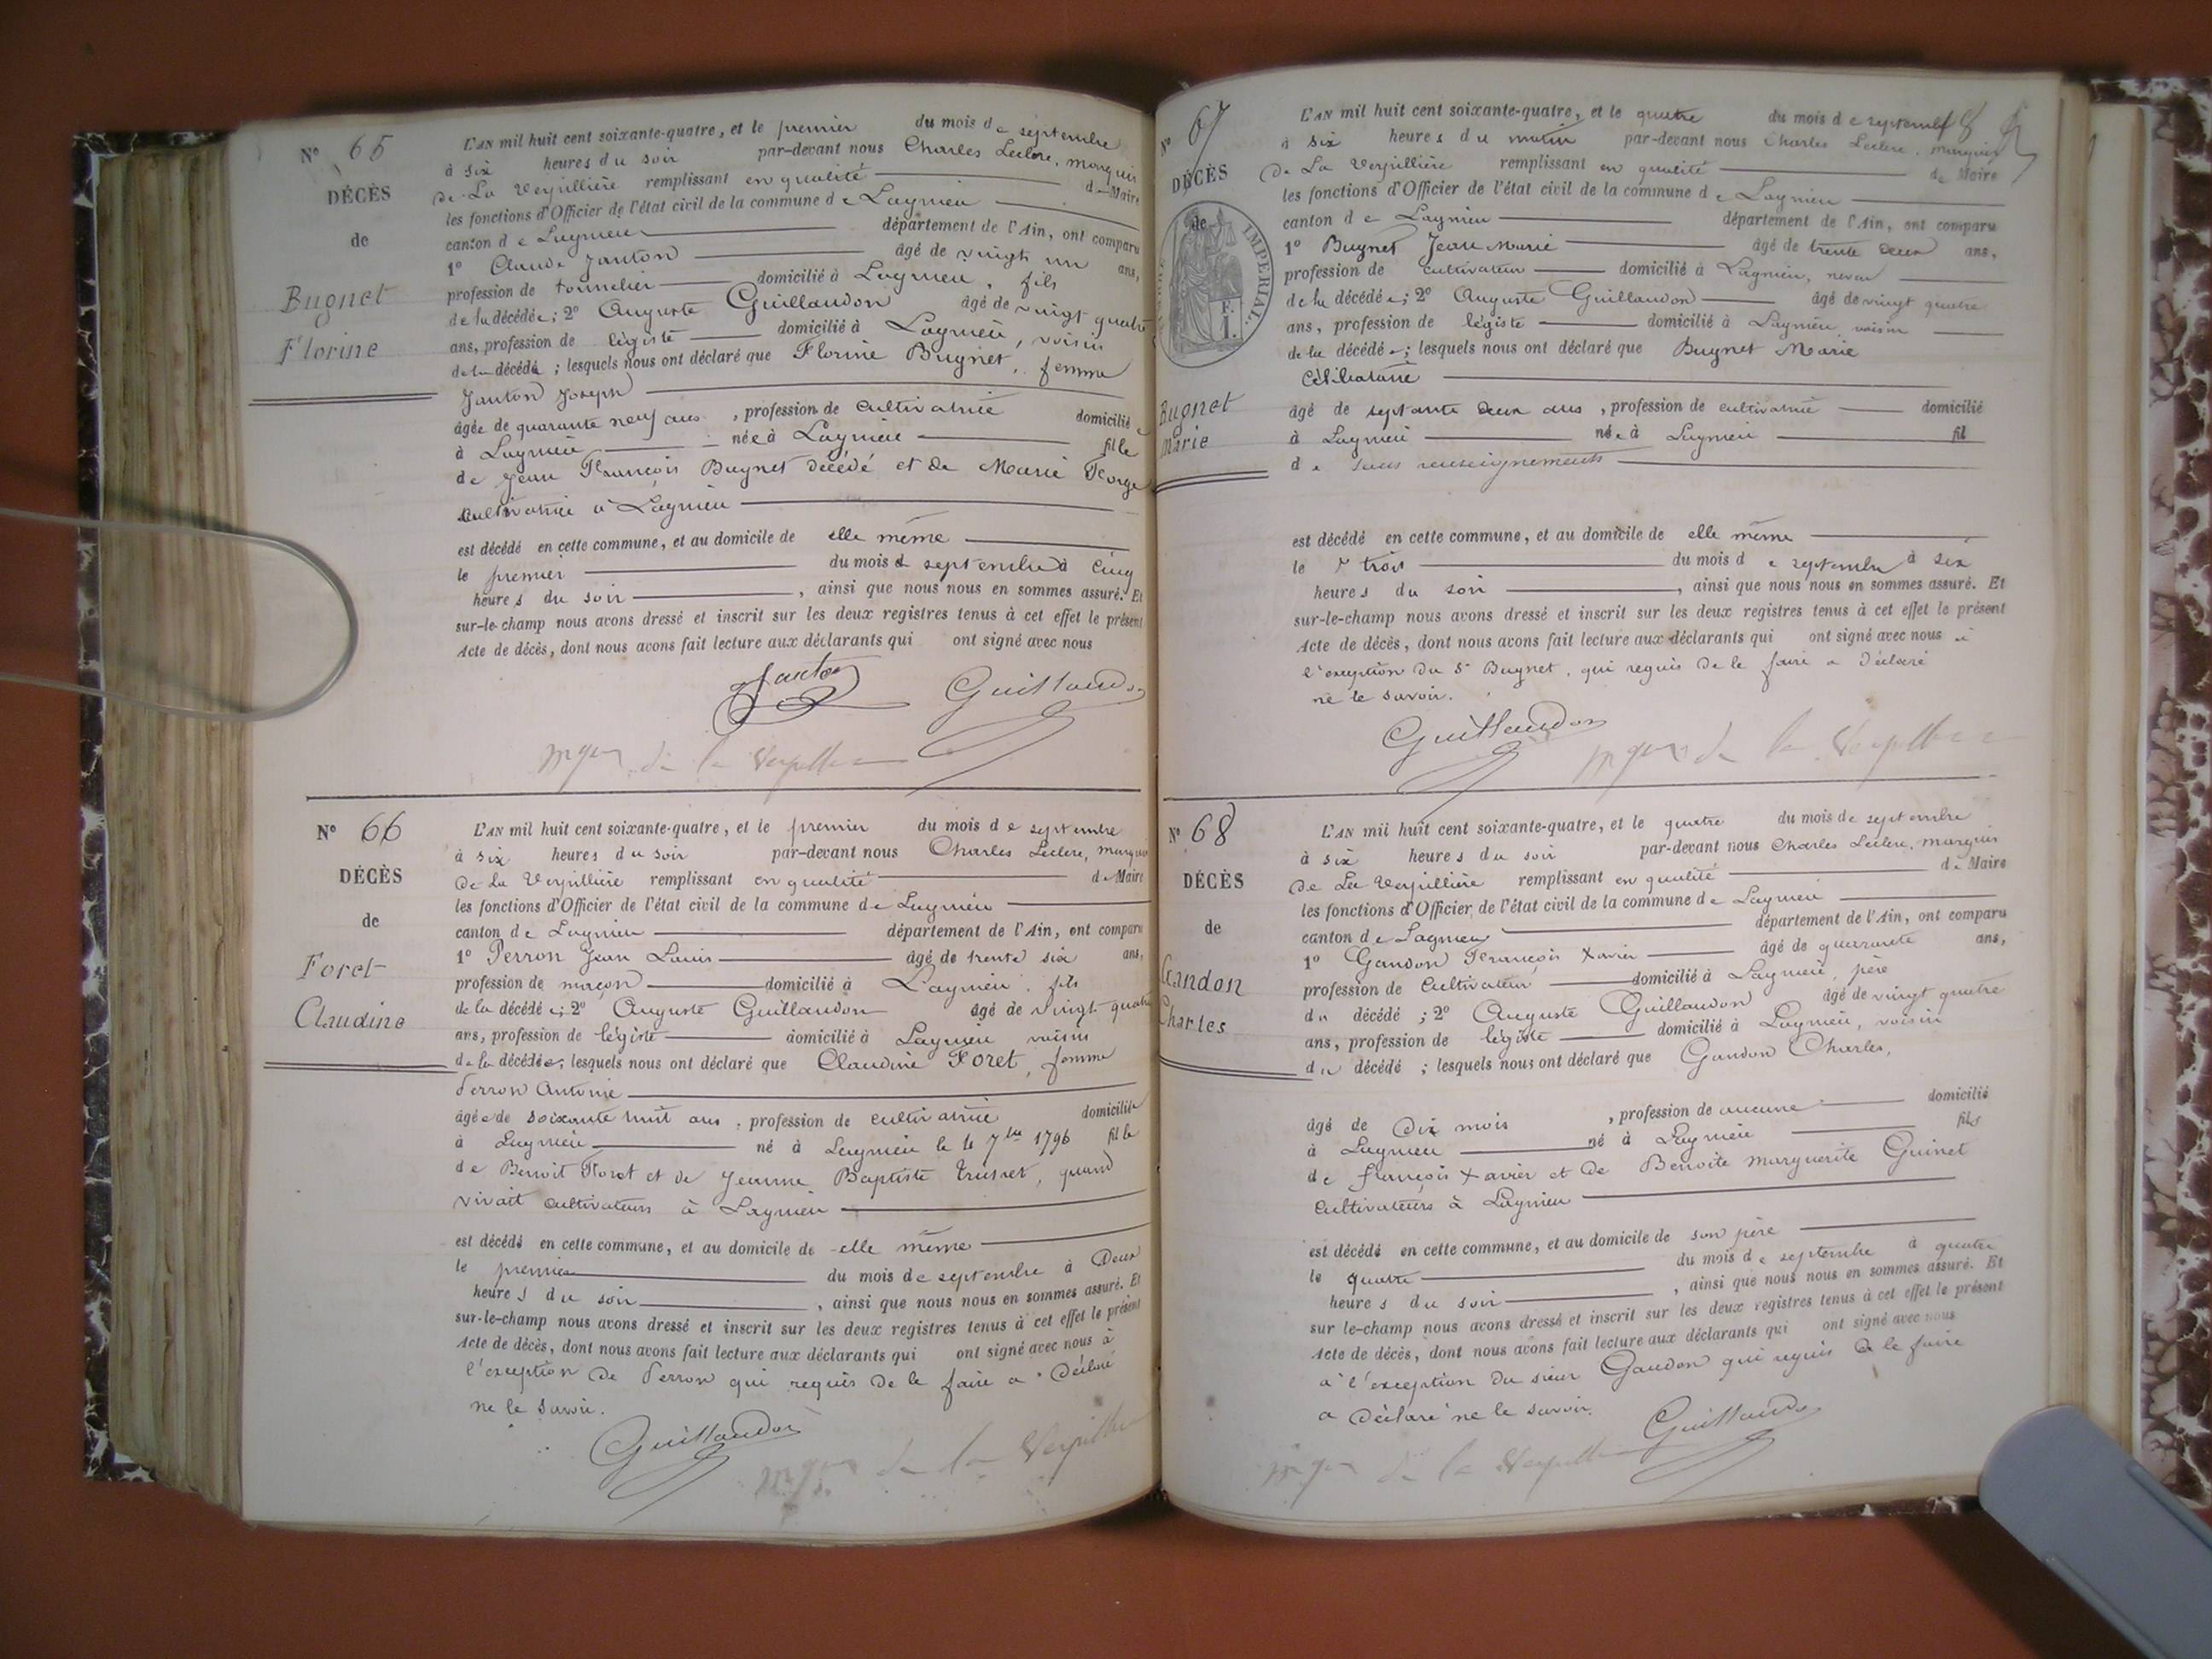 N° 65
DÉCÈS
de
Bugnet
Florine
L'AN mil huit cent soixante-quatre, et le premier du mois de septembre
à six heures du soir par-devant nous Charles Leclerc, marquis
de La Verpillière remplissant en qualité de Maire
les fonctions d'Officier de l'état civil de la commune de Lagnieu
canton de Lagnieu département de l'Ain, ont comparu
1° Claude Janton âgé de vingt un ans,
profession de tonnelier domicilié à Lagnieu, fils
de la décédée; 2° Auguste Guillaudon âgé de vingt quatre
ans, profession de légiste domicilié à Lagnieu, voisin
de la décédée; lesquels nous ont déclaré que Florine Bugnet, femme
Janton Joseph
âgée de quarante neuf ans, profession de cultivatrice domiciliée
à Lagnieu née à Lagnieu fille
de Jean François Bugnet décédé et de Marie
cultivatrice à Lagnieu
est décédé en cette commune, et au domicile de elle même
le premier du mois de septembre à cinq
heures du soir, ainsi que nous nous en sommes assuré. Et
sur-le-champ nous avons dressé et inscrit sur les deux registres tenus à cet effet le présent
Acte de décès, dont nous avons fait lecture aux déclarants qui ont signé avec nous
Janton Guillaudon
mquis de la Verpillière
N° 66
DÉCÈS
de
Foret
Claudine
L'AN mil huit cent soixante-quatre, et le premier du mois de septembre
à six heures du soir par-devant nous Charles Leclerc, marquis
de La Verpillière remplissant en qualité de Maire
les fonctions d'Officier de l'état civil de la commune de Lagnieu
canton de Lagnieu département de l'Ain, ont comparu
1° Perron Jean Louis âgé de trente six ans,
profession de maçon domicilié à Lagnieu, fils
de la décédée; 2° Auguste Guillaudon âgé de vingt quatre
ans, profession de légiste domicilié à Lagnieu voisin
de la décédée; lesquels nous ont déclaré que Claudine Foret, femme
Perron Antoine
âgée de soixante huit ans, profession de cultivatrice domiciliée
à Lagnieu né à Lagnieu le 7bre 1796 fille
de Benoit Foret et de Jeanne Baptiste, quand
vivait cultivateurs à Lagnieu
est décédé en cette commune, et au domicile de elle même
le premier du mois de septembre à deux
heures du soir, ainsi que nous nous en sommes assuré. Et
sur-le-champ nous avons dressé et inscrit sur les deux registres tenus à cet effet le présent
Acte de décès, dont nous avons fait lecture aux déclarants qui ont signé avec nous à
l'exception de Perron qui requis de le faire a déclaré
ne le savoir.
Guillaudon
mquis de la Verpillière
N° 67
DÉCÈS
de
IMPÉRIAL
F.
1.
Bugnet
Marie
L'AN mil huit cent soixante-quatre, et le quatre du mois de septembre
à six heures du matin par-devant nous Charles Leclerc, marquis
de La Verpillière remplissant en qualité de Maire
les fonctions d'Officier de l'état civil de la commune de Lagnieu
canton de Lagnieu département de l'Ain, ont comparu
1° Bugnet Jean Marie âgé de trente deux ans,
profession de cultivateur domicilié à Lagnieu, neveu
de la décédée; 2° Auguste Guillaudon âgé de vingt quatre
ans, profession de légiste domicilié à Lagnieu, voisin
de la décédée; lesquels nous ont déclaré que Bugnet Marie
Célibataire
âgé de septante deux ans, profession de cultivatrice domicilié
à Lagnieu née à Lagnieu fil
de sans renseignements
est décédé en cette commune, et au domicile de elle même
le trois du mois de septembre à six
heures du soir, ainsi que nous nous en sommes assuré. Et
sur-le-champ nous avons dressé et inscrit sur les deux registres tenus à cet effet le présent
Acte de décès, dont nous avons fait lecture aux déclarants qui ont signé avec nous à
l'exception du Sr Bugnet, qui requis de le faire a déclaré
ne le savoir.
Guillaudon mquis de la Verpillière
N° 68
DÉCÈS
de
Gandon
Charles
L'AN mil huit cent soixante-quatre, et le quatre du mois de septembre
à six heures du soir par-devant nous Charles Leclerc, marquis
de La Verpillière remplissant en qualité de Maire
les fonctions d'Officier de l'état civil de la commune de Lagnieu
canton de Lagnieu département de l'Ain, ont comparu
1° Gandon François Xavier âgé de quarante ans,
profession de cultivateur domicilié à Lagnieu, père
du décédé; 2° Auguste Guillaudon âgé de vingt quatre
ans, profession de légiste domicilié à Lagnieu, voisin
du décédé; lesquels nous ont déclaré que Gandon Charles,
âgé de dix mois, profession de aucune domicilié
à Lagnieu né à Lagnieu fils
de François Xavier et de Benoite Marguerite Guinet
cultivateurs à Lagnieu
est décédé en cette commune, et au domicile de son père
le quatre du mois de septembre à quatre
heures du soir, ainsi que nous nous en sommes assuré. Et
sur le-champ nous avons dressé et inscrit sur les deux registres tenus à cet effet le présent
Acte de décès, dont nous avons fait lecture aux déclarants qui ont signé avec nous
à l'exception du sieur Gandon qui requis de le faire
a déclaré ne le savoir.
Guillaudon
mquis de la Verpillière